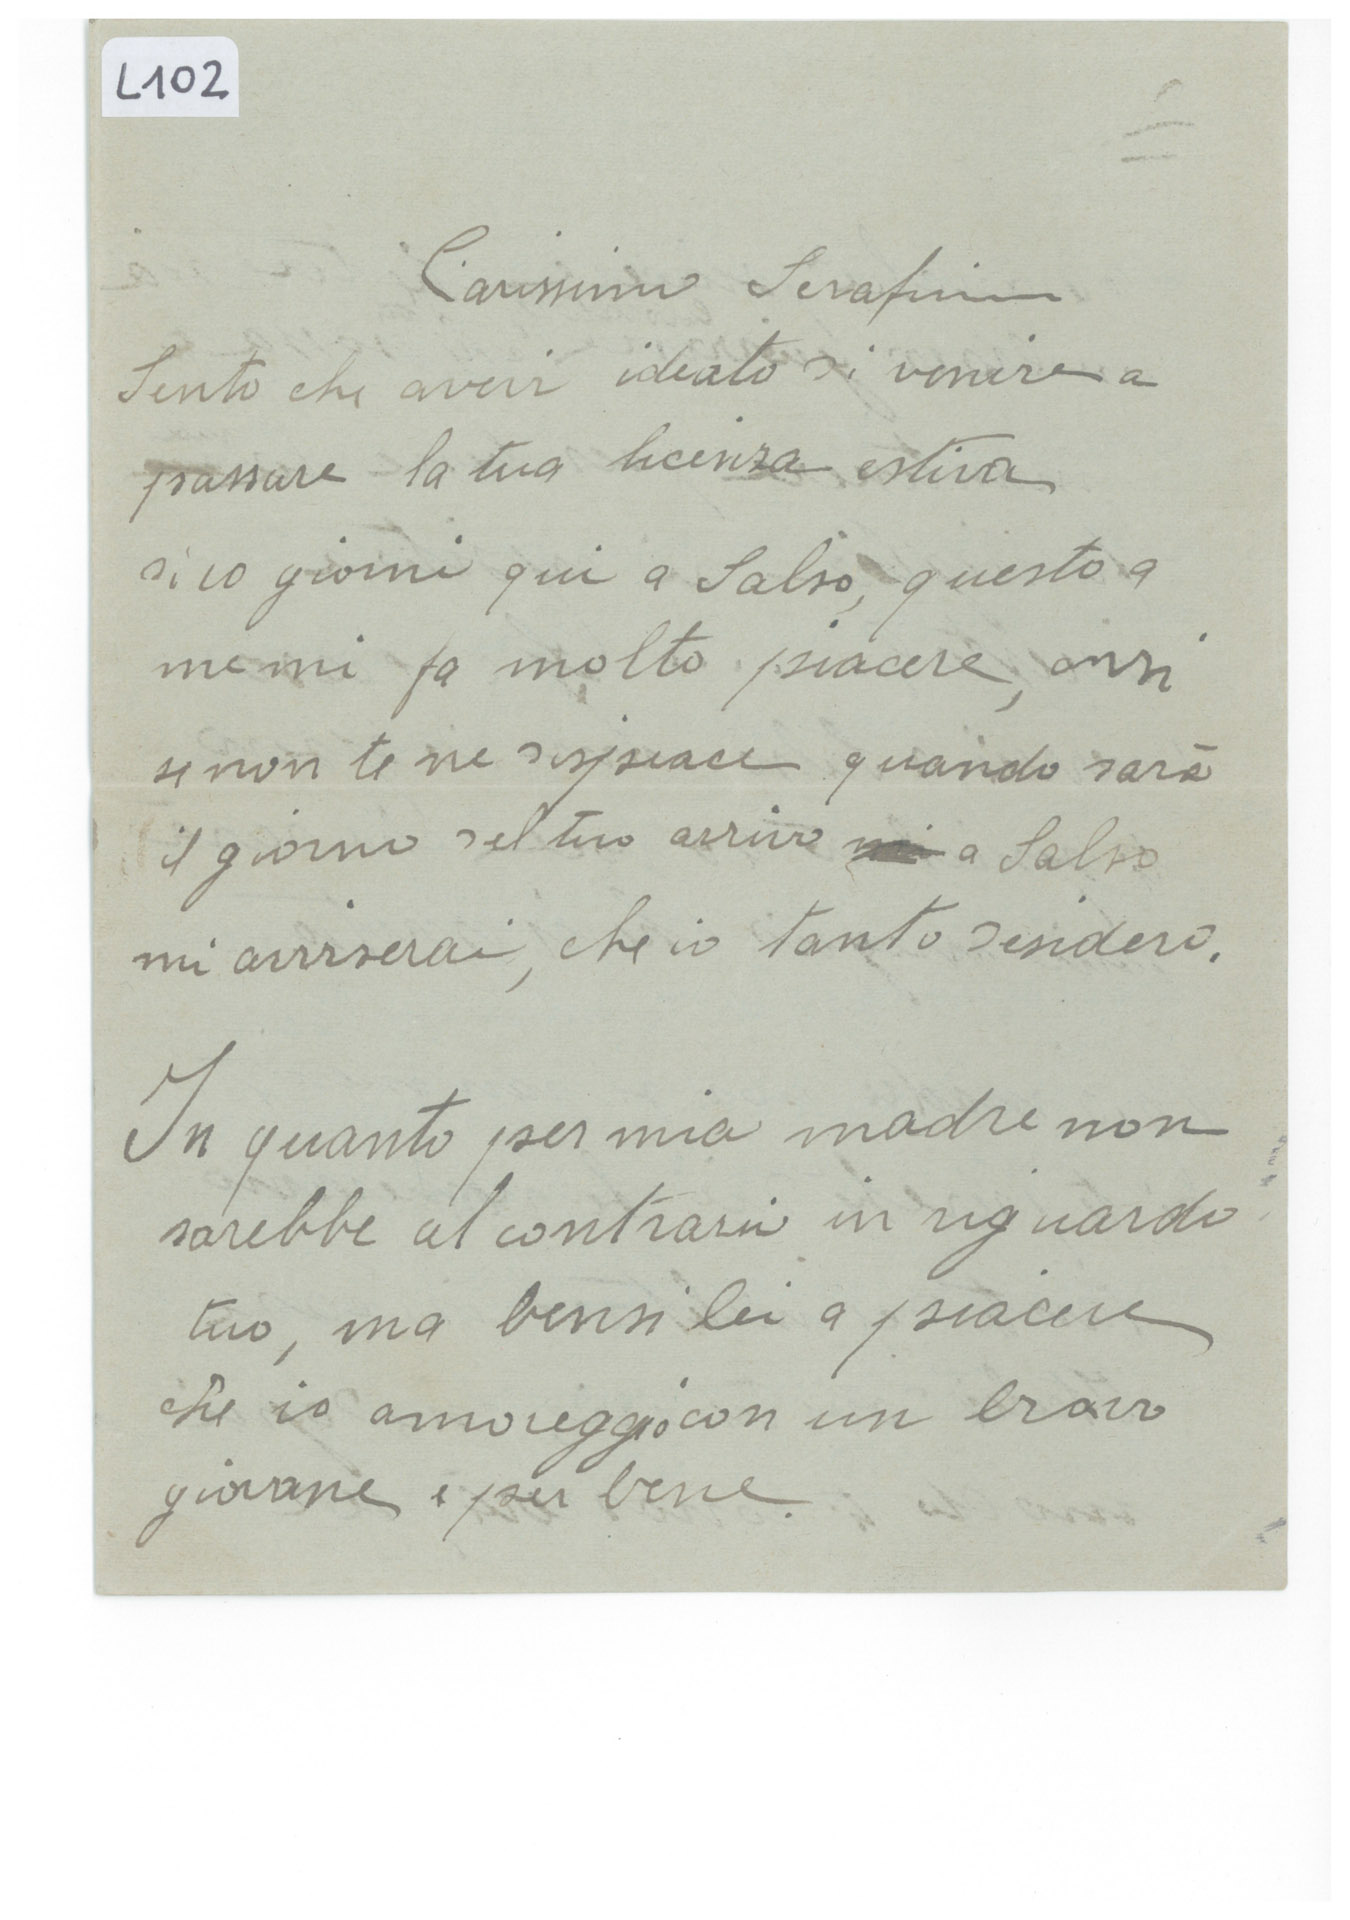 L102
Carissimo Serafino
Sento che avevi ideato di venire a
passare la tua licenza estiva
di 10 giorni qui a Salso, questo a
me mi fa molto piacere, anzi
se non te ne dispiace quando sarà
il giorno del tuo arrivo a Salso
mi avviserai, che io tanto desidero.
In quanto per mia madre non
sarebbe al contrario in riguardo
tuo, ma bensi lei a piacere
che io amoreggio con un bravo
giovane e per bene.